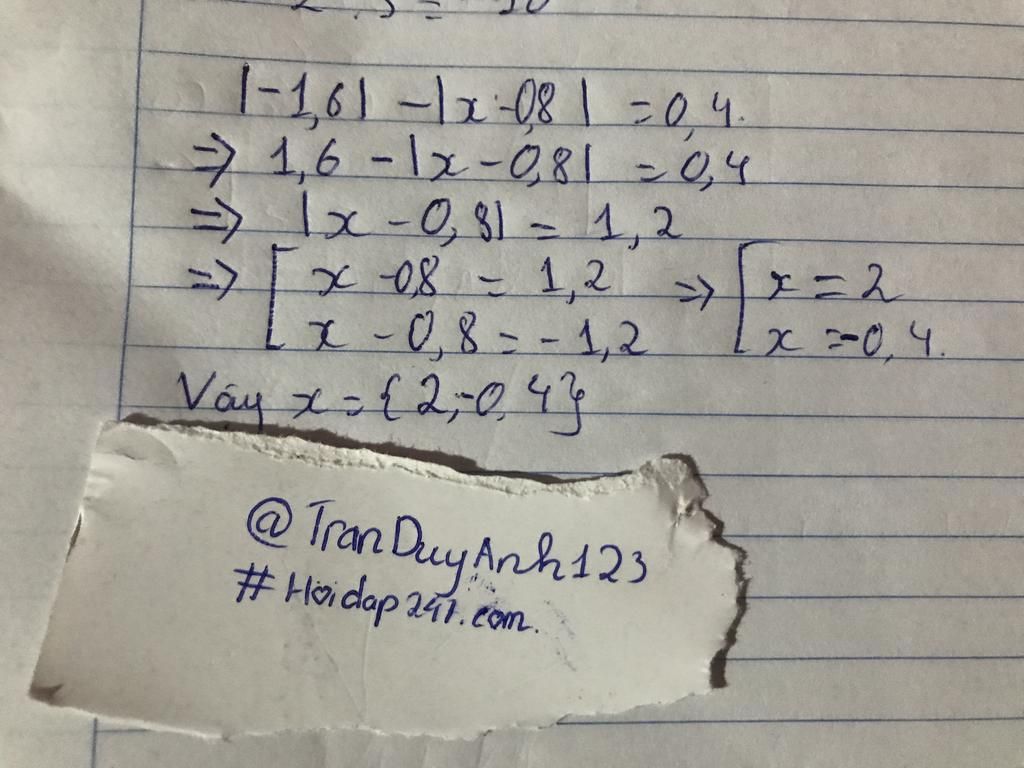 |-1,6| - |x - 0,8| = 0,4.
=> 1,6 - |x - 0,8| = 0,4
=> |x - 0,8| = 1,2
=> [ x - 0,8 = 1,2 => [ x = 2
x - 0,8 = - 1,2 x = -0,4.
Vây x = {2;-0,4}
@TranDuyAnh123
#Hoidap247.com.